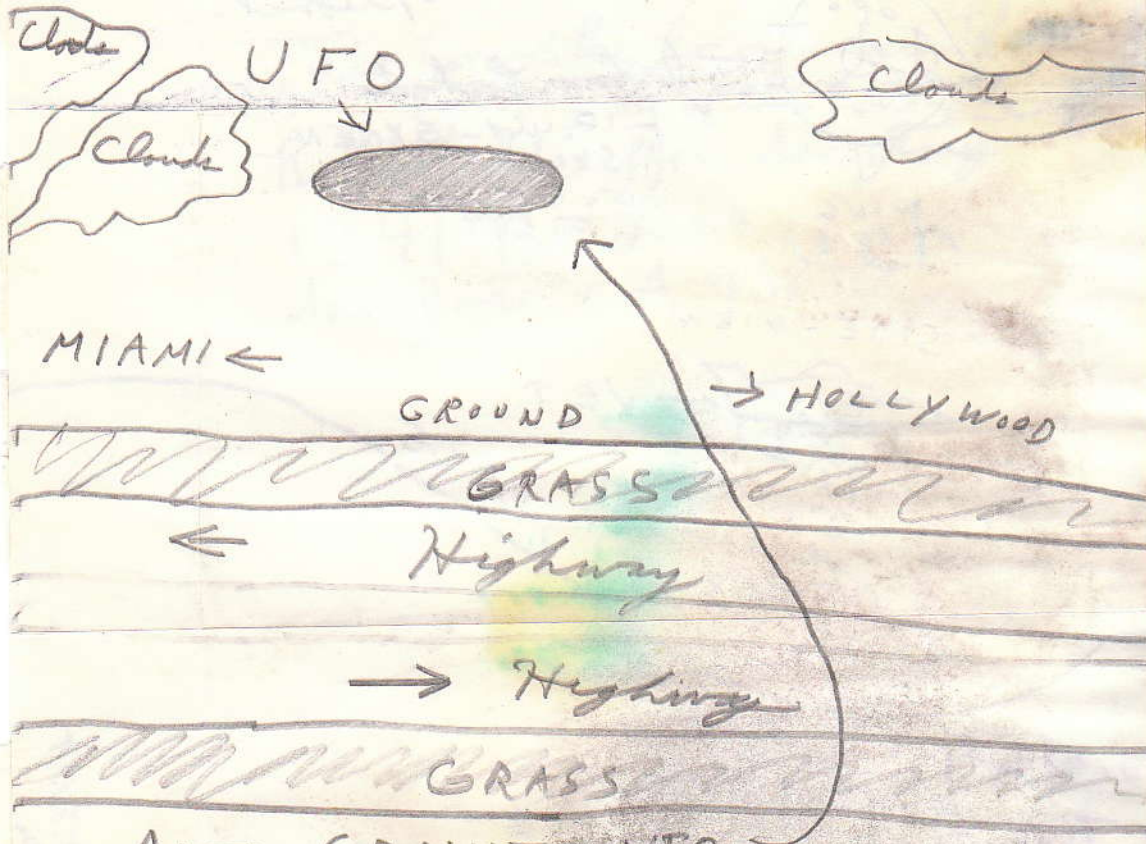 Clouds
UFO
Clouds
Clouds
MIAMI ←
→ HOLLYWOOD
GROUND
GRASS
← Highway
→ Highway
GRASS